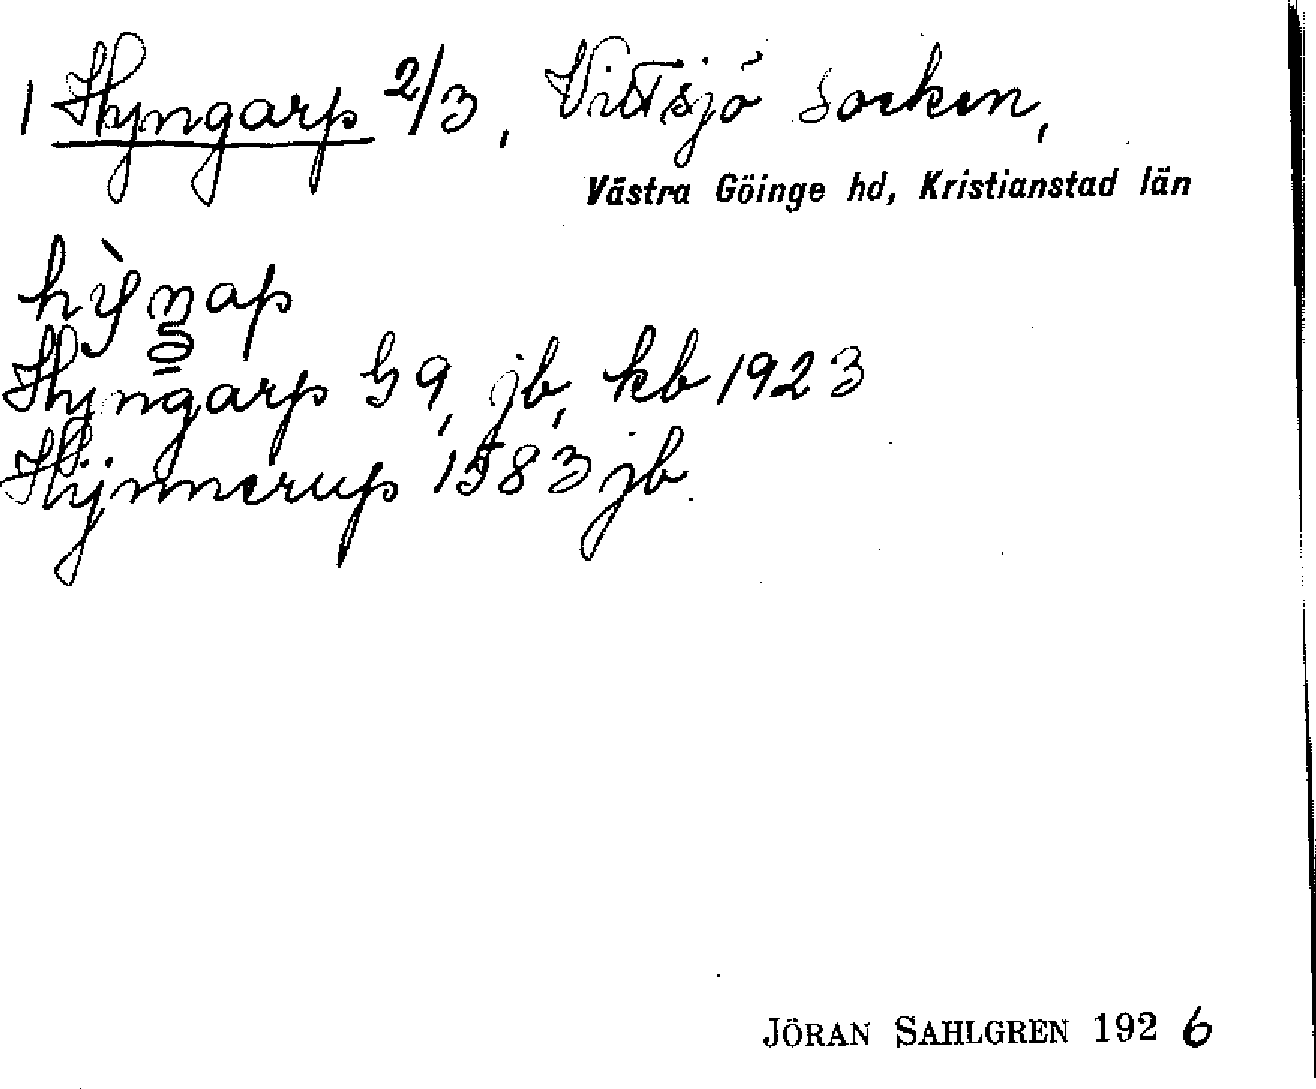 1 Hyngarp 2/3, Vittsjö Socken,
Västra Göinge hd, Kristianstad län
hỳŋap
Hyngarp G9, jb, kb 1923
Hynnerup 1583 jb.
JÖRAN SAHLGREN 1926